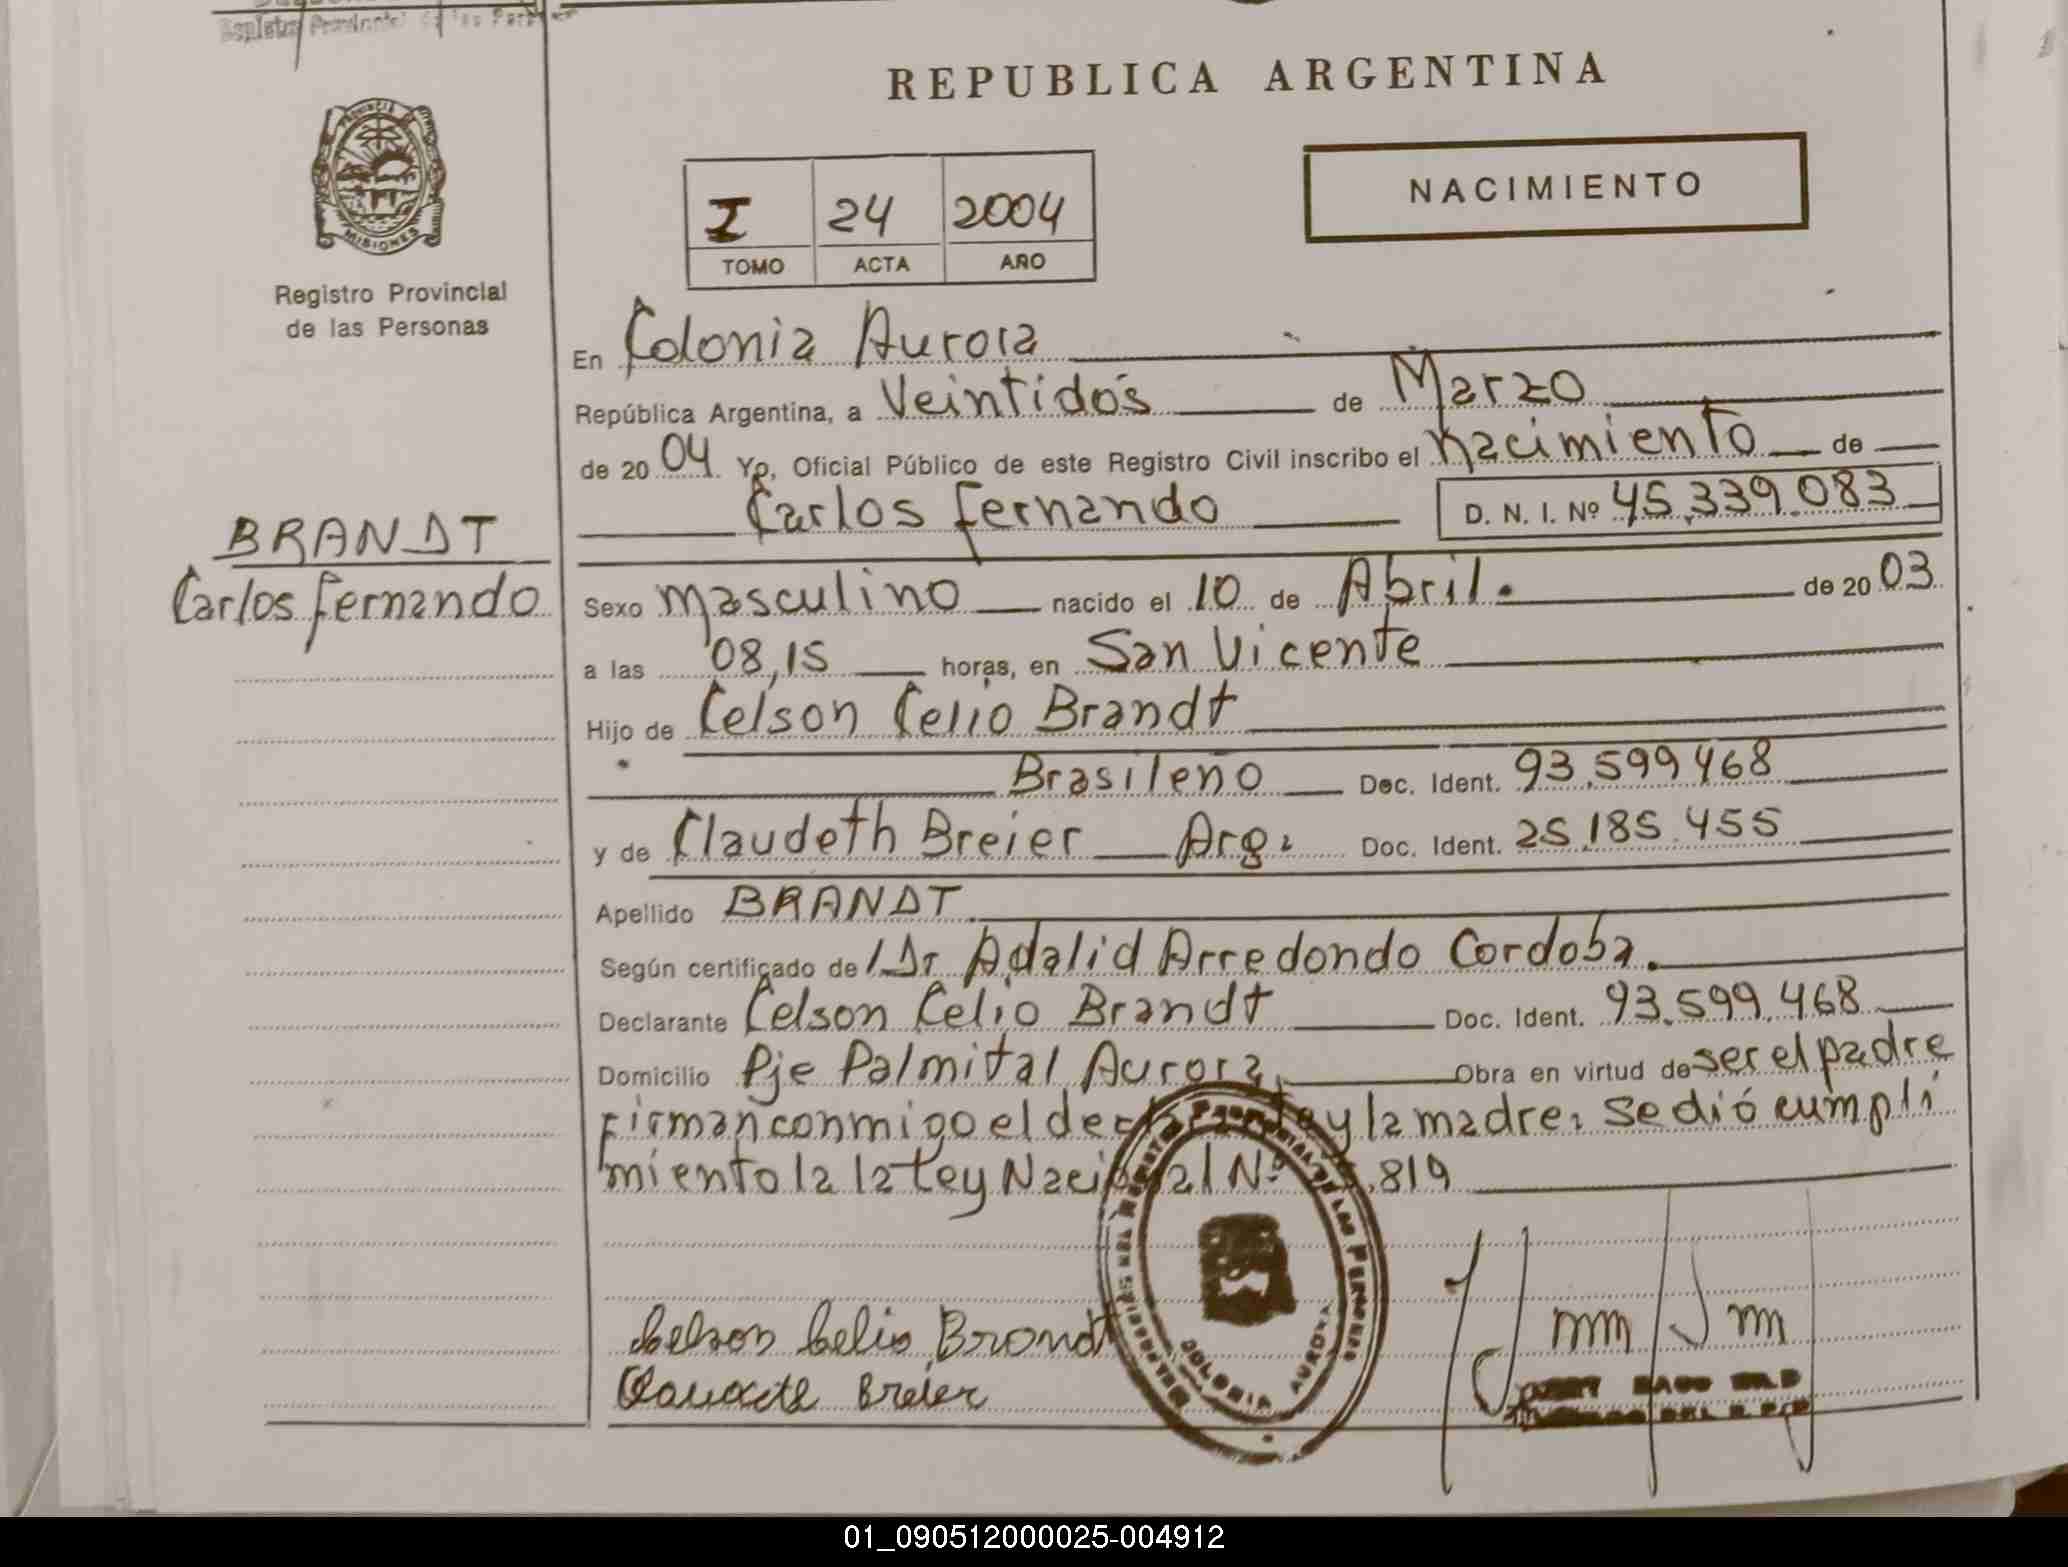 Registro Provincial de las Personas
REPUBLICA ARGENTINA
PROVINCIA DE
MISIONES
Registro Provincial
de las Personas
I 24 2004
TOMO ACTA AÑO
NACIMIENTO
BRANDT
Carlos Fernando
En Colonia Aurora
República Argentina, a Veintidós de Marzo
de 20 04 Yo, Oficial Público de este Registro Civil inscribo el Nacimiento de
Carlos Fernando D. N. I. Nº 45.339.083
Sexo Masculino nacido el 10 de Abril. de 20 03
a las 08,15 horas, en San Vicente
Hijo de Celson Celio Brandt
Brasileño Doc. Ident. 93.599.468
y de Claudeth Breier Arg. Doc. Ident. 25.185.455
Apellido BRANDT
Según certificado de / Dr Adalid Arredondo Cordoba.
Declarante Celson Celio Brandt Doc. Ident. 93.599.468
Domicilio Pje Palmital Aurora Obra en virtud de ser el padre
Firman conmigo el declarante y la madre. Se dió cumpli
miento la la Ley Nacional Nº .819
Celson Celio Brandt
Claudeth Breier
COLONIA AURORA
01_090512000025-004912